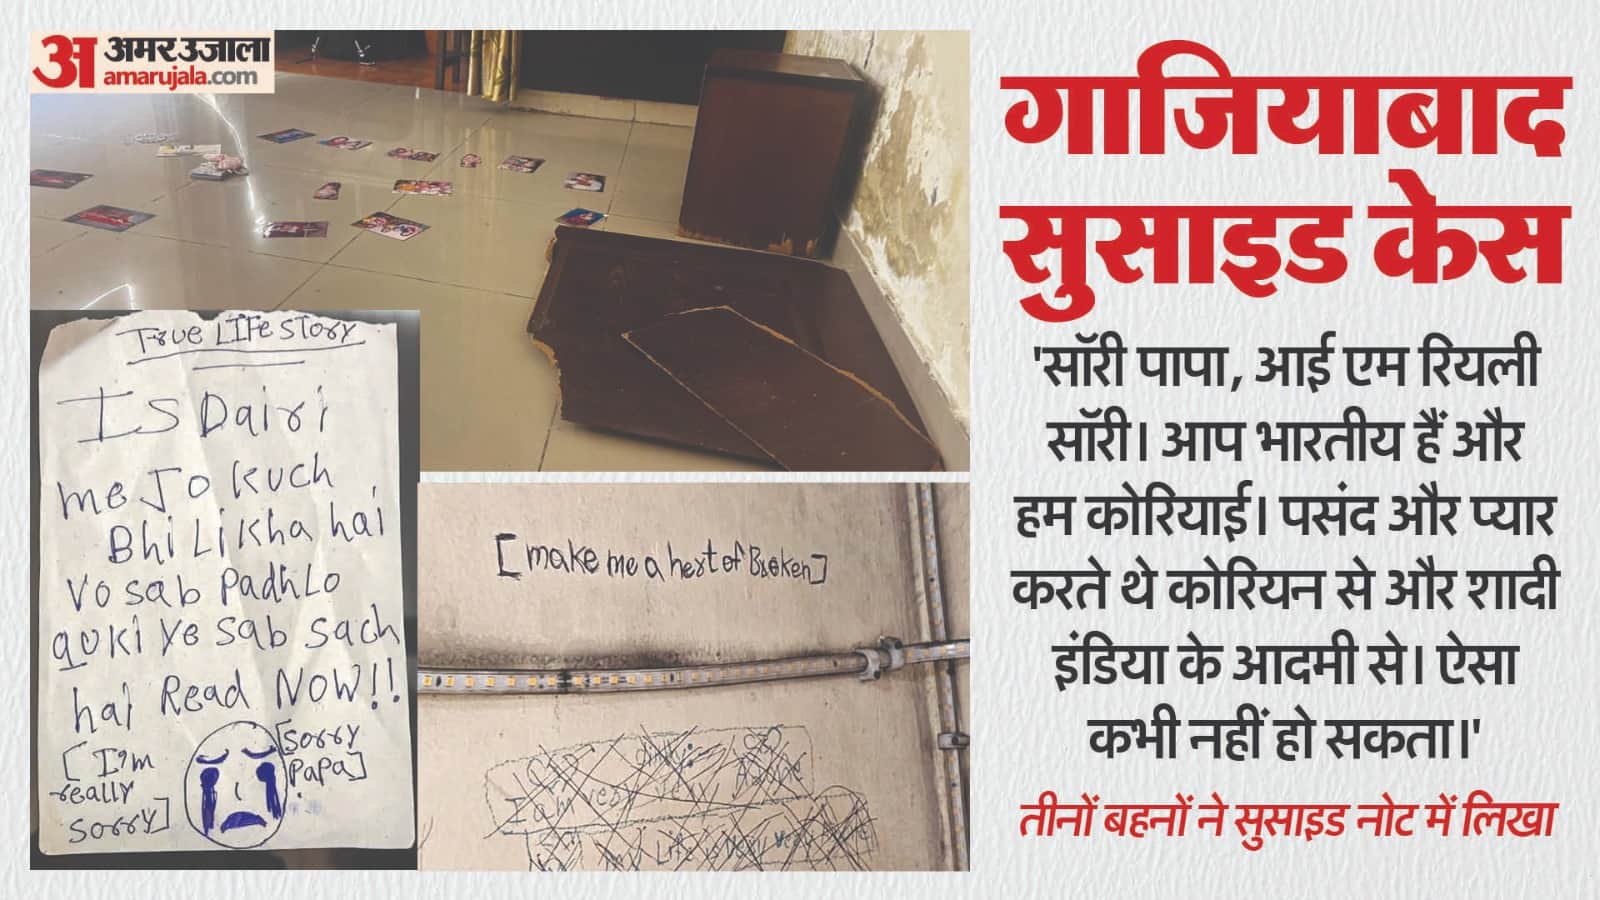 अ अमर उजाला
amarujala.com
True LIFe Story
IS Dairi
me Jo kuch
Bhi Likha hai
vo sab Padh Lo
quki ye sab sach
hai Read NOW!!
[I'm
really
sorry]
[sorry
PaPa]
[make me a hert of Broken]
I am very
my Life is very very
गाजियाबाद
सुसाइड केस
'सॉरी पापा, आई एम रियली
सॉरी। आप भारतीय हैं और
हम कोरियाई। पसंद और प्यार
करते थे कोरियन से और शादी
इंडिया के आदमी से। ऐसा
कभी नहीं हो सकता।'
तीनों बहनों ने सुसाइड नोट में लिखा